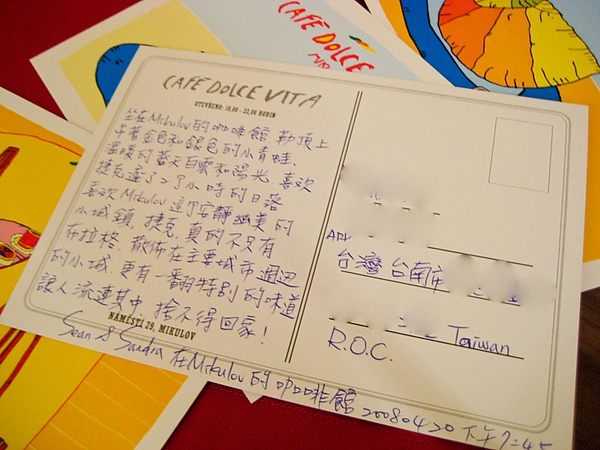 CAFE DOLCE
CAFE DOLCE VITA
OTEVŘENO: 10,00 - 22,00 HODIN
坐在Mikulov的咖啡館 動頂上
平著金色和銀色的小青蛙、
溫暖的藍天白雲和陽光 喜次
捷克遲了2個小時的日落
喜次Mikulov這個安靜幽美的
小城鎮，捷克 真的不只有
布拉格，散佈在主要城市週邊
的小城，更有一翻特別的味道
讓人流連其中 捨不得回家！
NÁMĚSTÍ 29, MIKULOV
Sean & Sandra 在Mikulov的咖啡館 20080420 下午7:45
台灣 台南市
Taiwan
R.O.C.